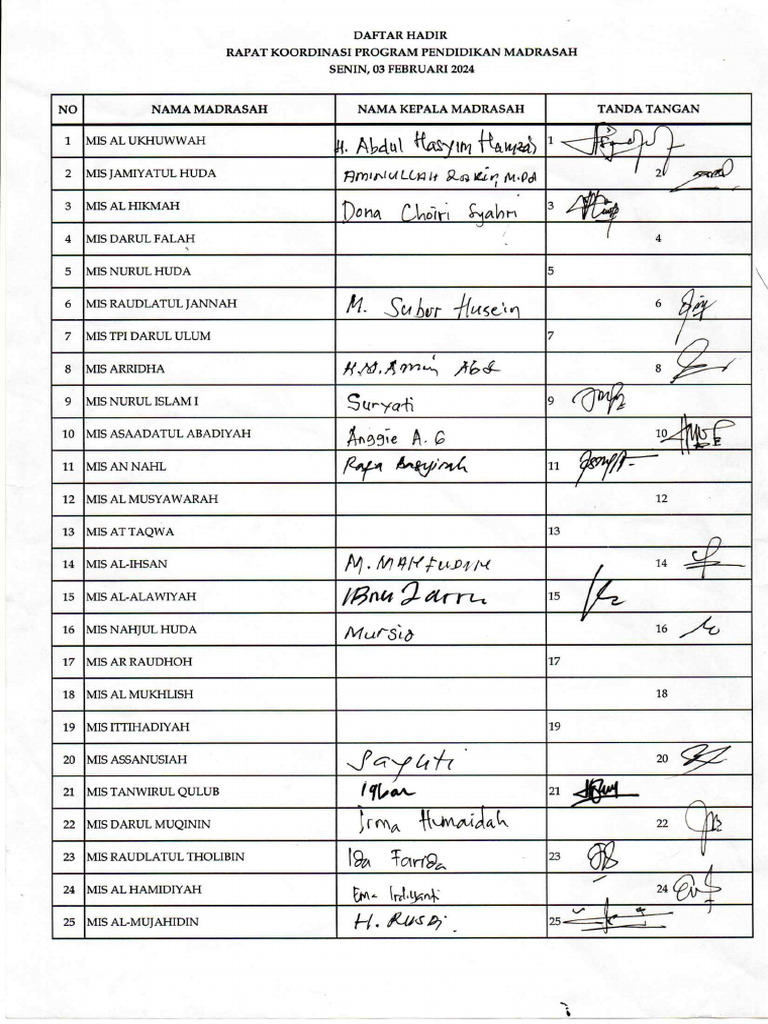 DAFTAR HADIR
RAPAT KOORDINASI PROGRAM PENDIDIKAN MADRASAH
SENIN, 03 FEBRUARI 2024
NO NAMA MADRASAH NAMA KEPALA MADRASAH TANDA TANGAN
1 MIS AL UKHUWWAH H. Abdul Hasyim 1
2 MIS JAMIYATUL HUDA AMINULLAH M.Pd 2
3 MIS AL HIKMAH Dona Choiri Syahri 3
4 MIS DARUL FALAH 4
5 MIS NURUL HUDA 5
6 MIS RAUDLATUL JANNAH M. Subur Husein 6
7 MIS TPI DARUL ULUM 7
8 MIS ARRIDHA 8
9 MIS NURUL ISLAM I Suryati 9
10 MIS ASAADATUL ABADIYAH Anggie A. G 10
11 MIS AN NAHL 11
12 MIS AL MUSYAWARAH 12
13 MIS AT TAQWA 13
14 MIS AL-IHSAN 14
15 MIS AL-ALAWIYAH 15
16 MIS NAHJUL HUDA 16
17 MIS AR RAUDHOH 17
18 MIS AL MUKHLISH 18
19 MIS ITTIHADIYAH 19
20 MIS ASSANUSIAH Sayuti 20
21 MIS TANWIRUL QULUB 21
22 MIS DARUL MUQININ Irma Humaidah 22
23 MIS RAUDLATUL THOLIBIN Ida Farida 23
24 MIS AL HAMIDIYAH 24
25 MIS AL-MUJAHIDIN H. RUSDI 25